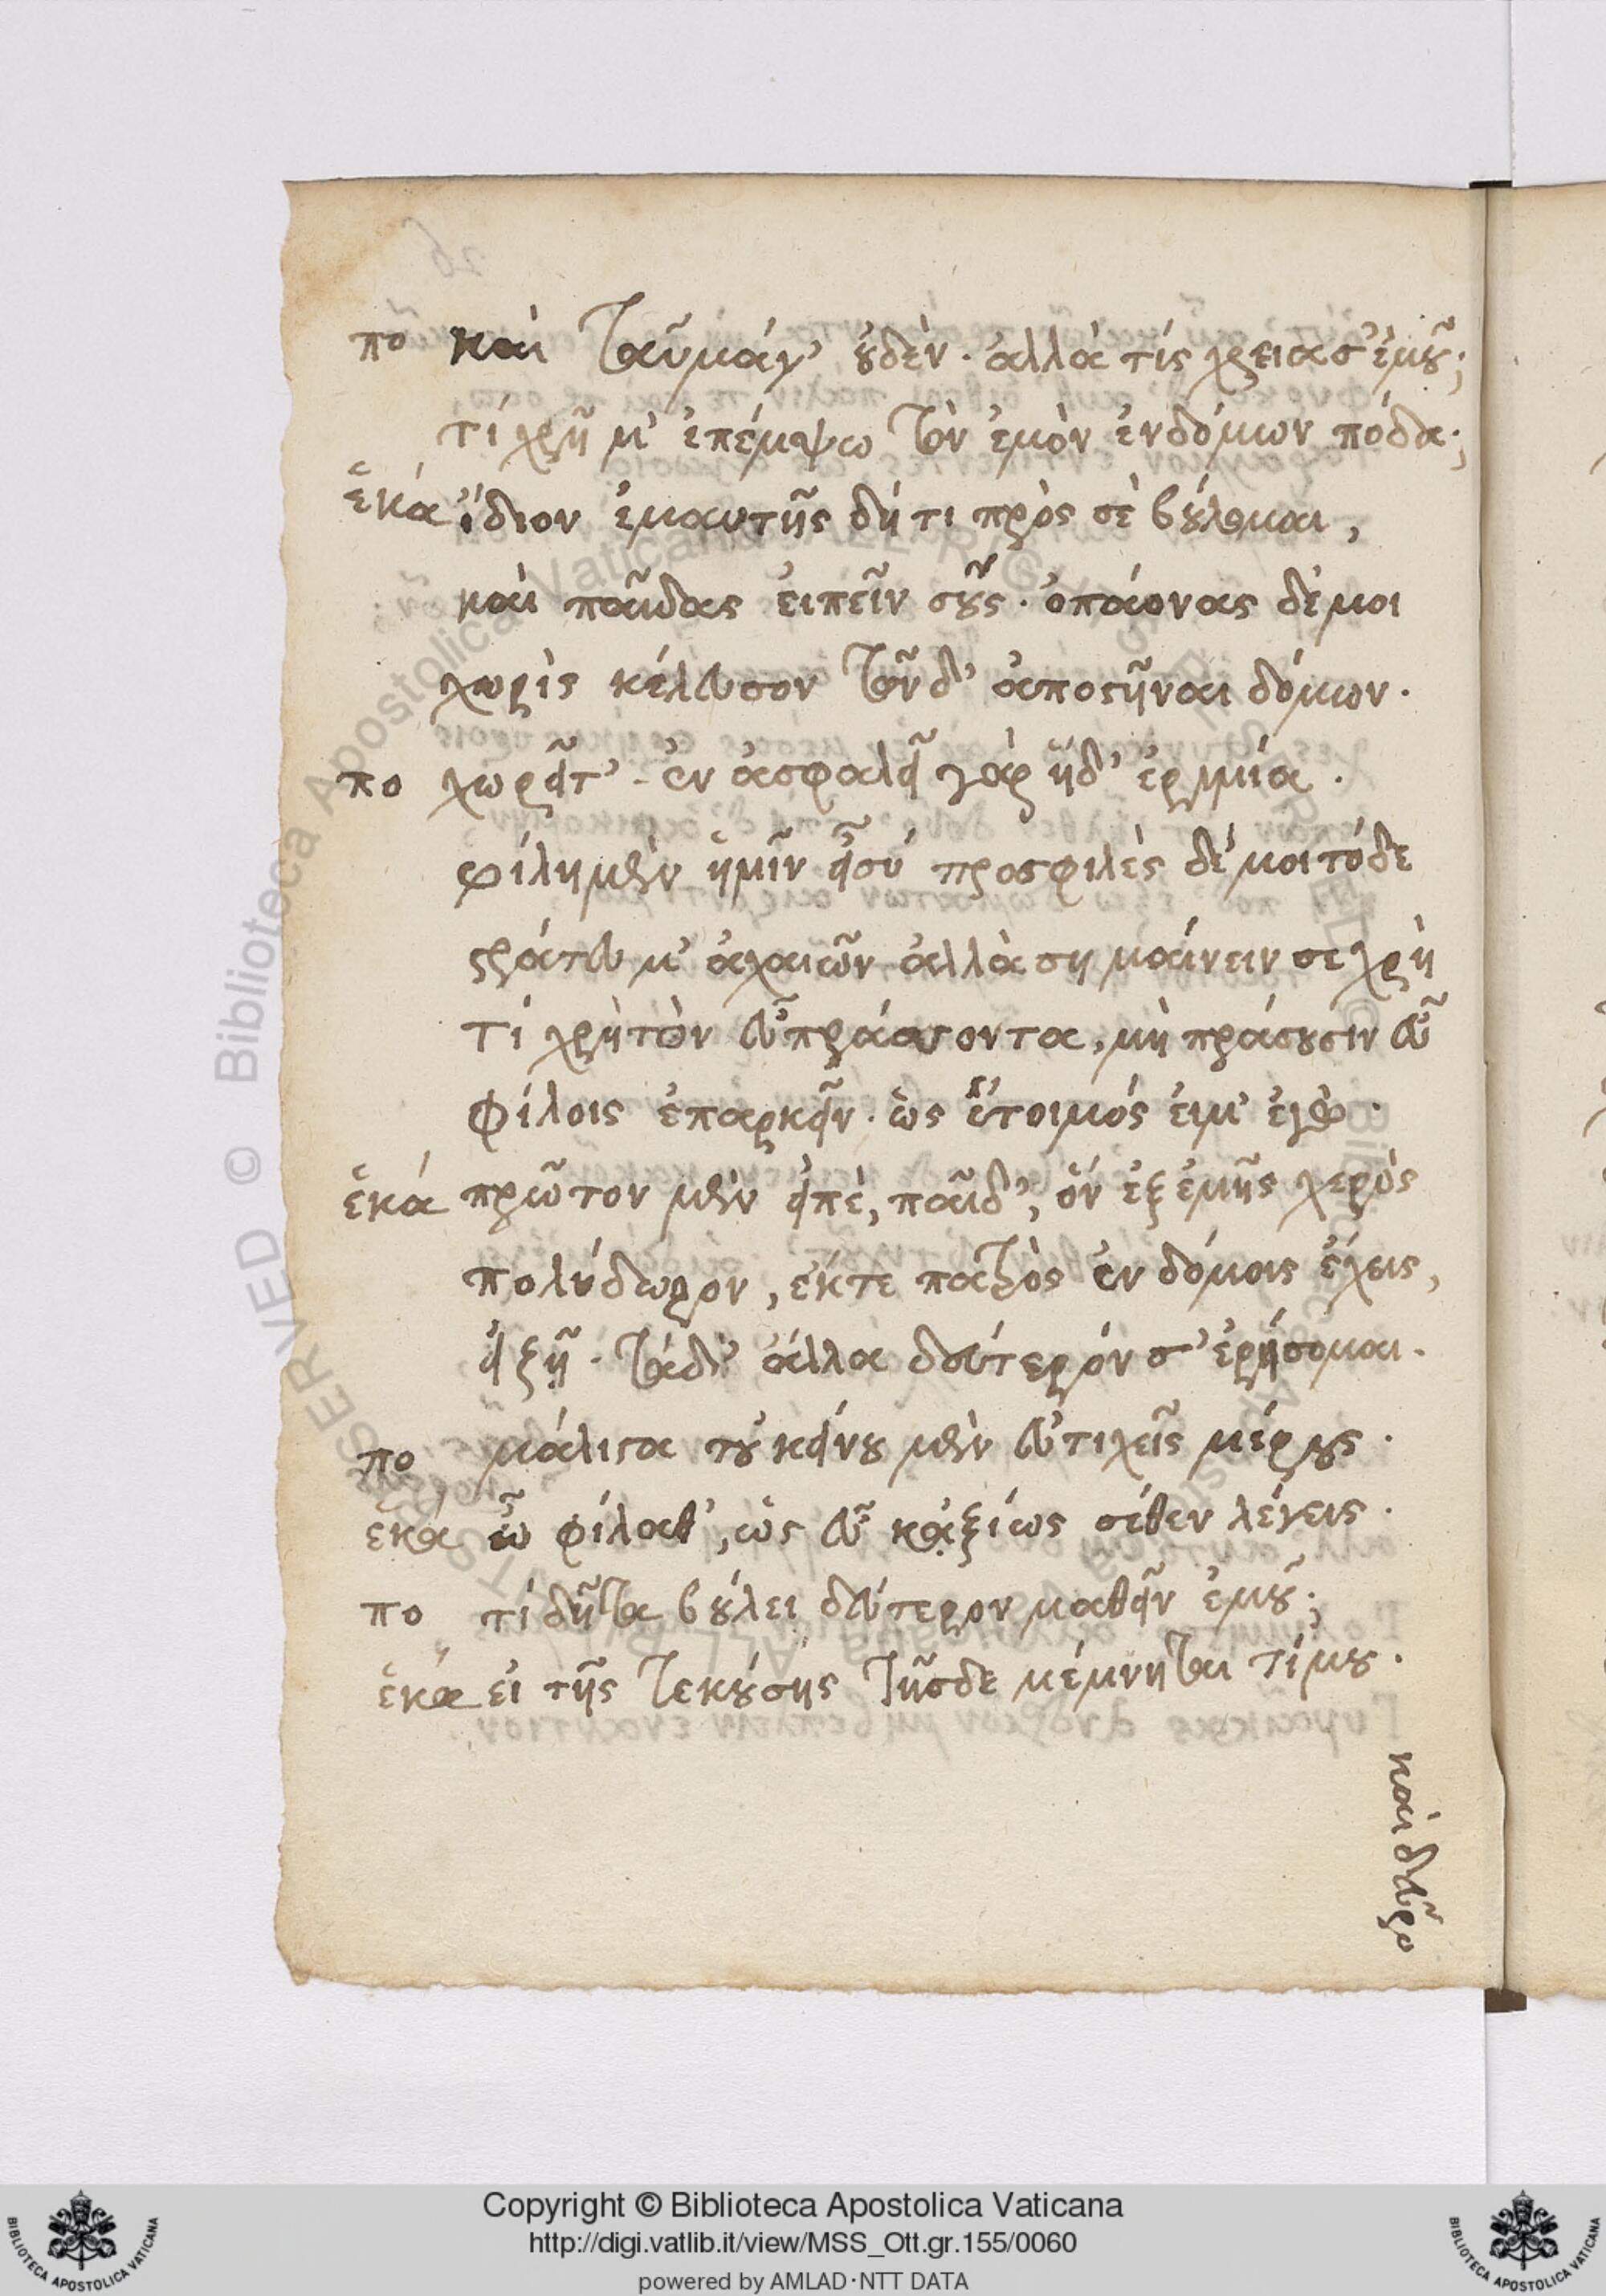 πο καὶ ταῦμάγ' οὐδὲν· ἀλλὰ τίς χρεια σ' ἐμοῦ;
τί χρῆ μ' ἐπέμψω τὸν ἐμὸν ἐνδόμων πόδα;
ἑκά ἴδιον ἐμαυτῆς δή τι πρὸς σὲ βούλομαι,
καὶ παῖδας ἐιπεῖν σοῦς· ὀπάονας δέ μοι
χωρὶς κέλευσον τῶνδ' ἀποστῆναι δόμων.
πο χωρεῖτ'· ἐν ἀσφαλεῖ γὰρ ἥδ' ἐρημία.
φίλη μὲν ἡμῖν εἶ σύ προσφιλὲς δέ μοι τόδε
στράτευμ' ἀχαιῶν ἀλλὰ σημαίνειν σε χρὴ
τί χρὴ τὸν εὖ πράσσοντα, μὴ πράσουσιν εὖ
φίλοις ἐπαρκεῖν· ὡς ἕτοιμός ἐιμ' ἐγώ.
ἑκά πρῶτον μὲν εἰπὲ, παῖδ', ὃν ἐξ ἐμῆς χερὸς
πολύδωρον, ἐκ τε πατρὸς ἐν δόμοις ἔχεις,
εἰ ζῆ· τὰ δ' ἄλλα δεύτερόν σ' ἐρήσομαι.
πο μάλιστα τοὐκείνου μὲν εὐτιχεῖς μέρους.
ἑκά ὦ φίλαθ', ὡς εὖ κἀξίως σέθεν λέγεις.
πο τί δῆτα βούλει δεύτερον μαθεῖν ἐμοῦ;
ἑκά εἰ τῆς τεκούσης τῆσδε μέμνηται τί μου.
καὶ δεῦρο
Copyright © Biblioteca Apostolica Vaticana
http://digi.vatlib.it/view/MSS_Ott.gr.155/0060
powered by AMLAD·NTT DATA